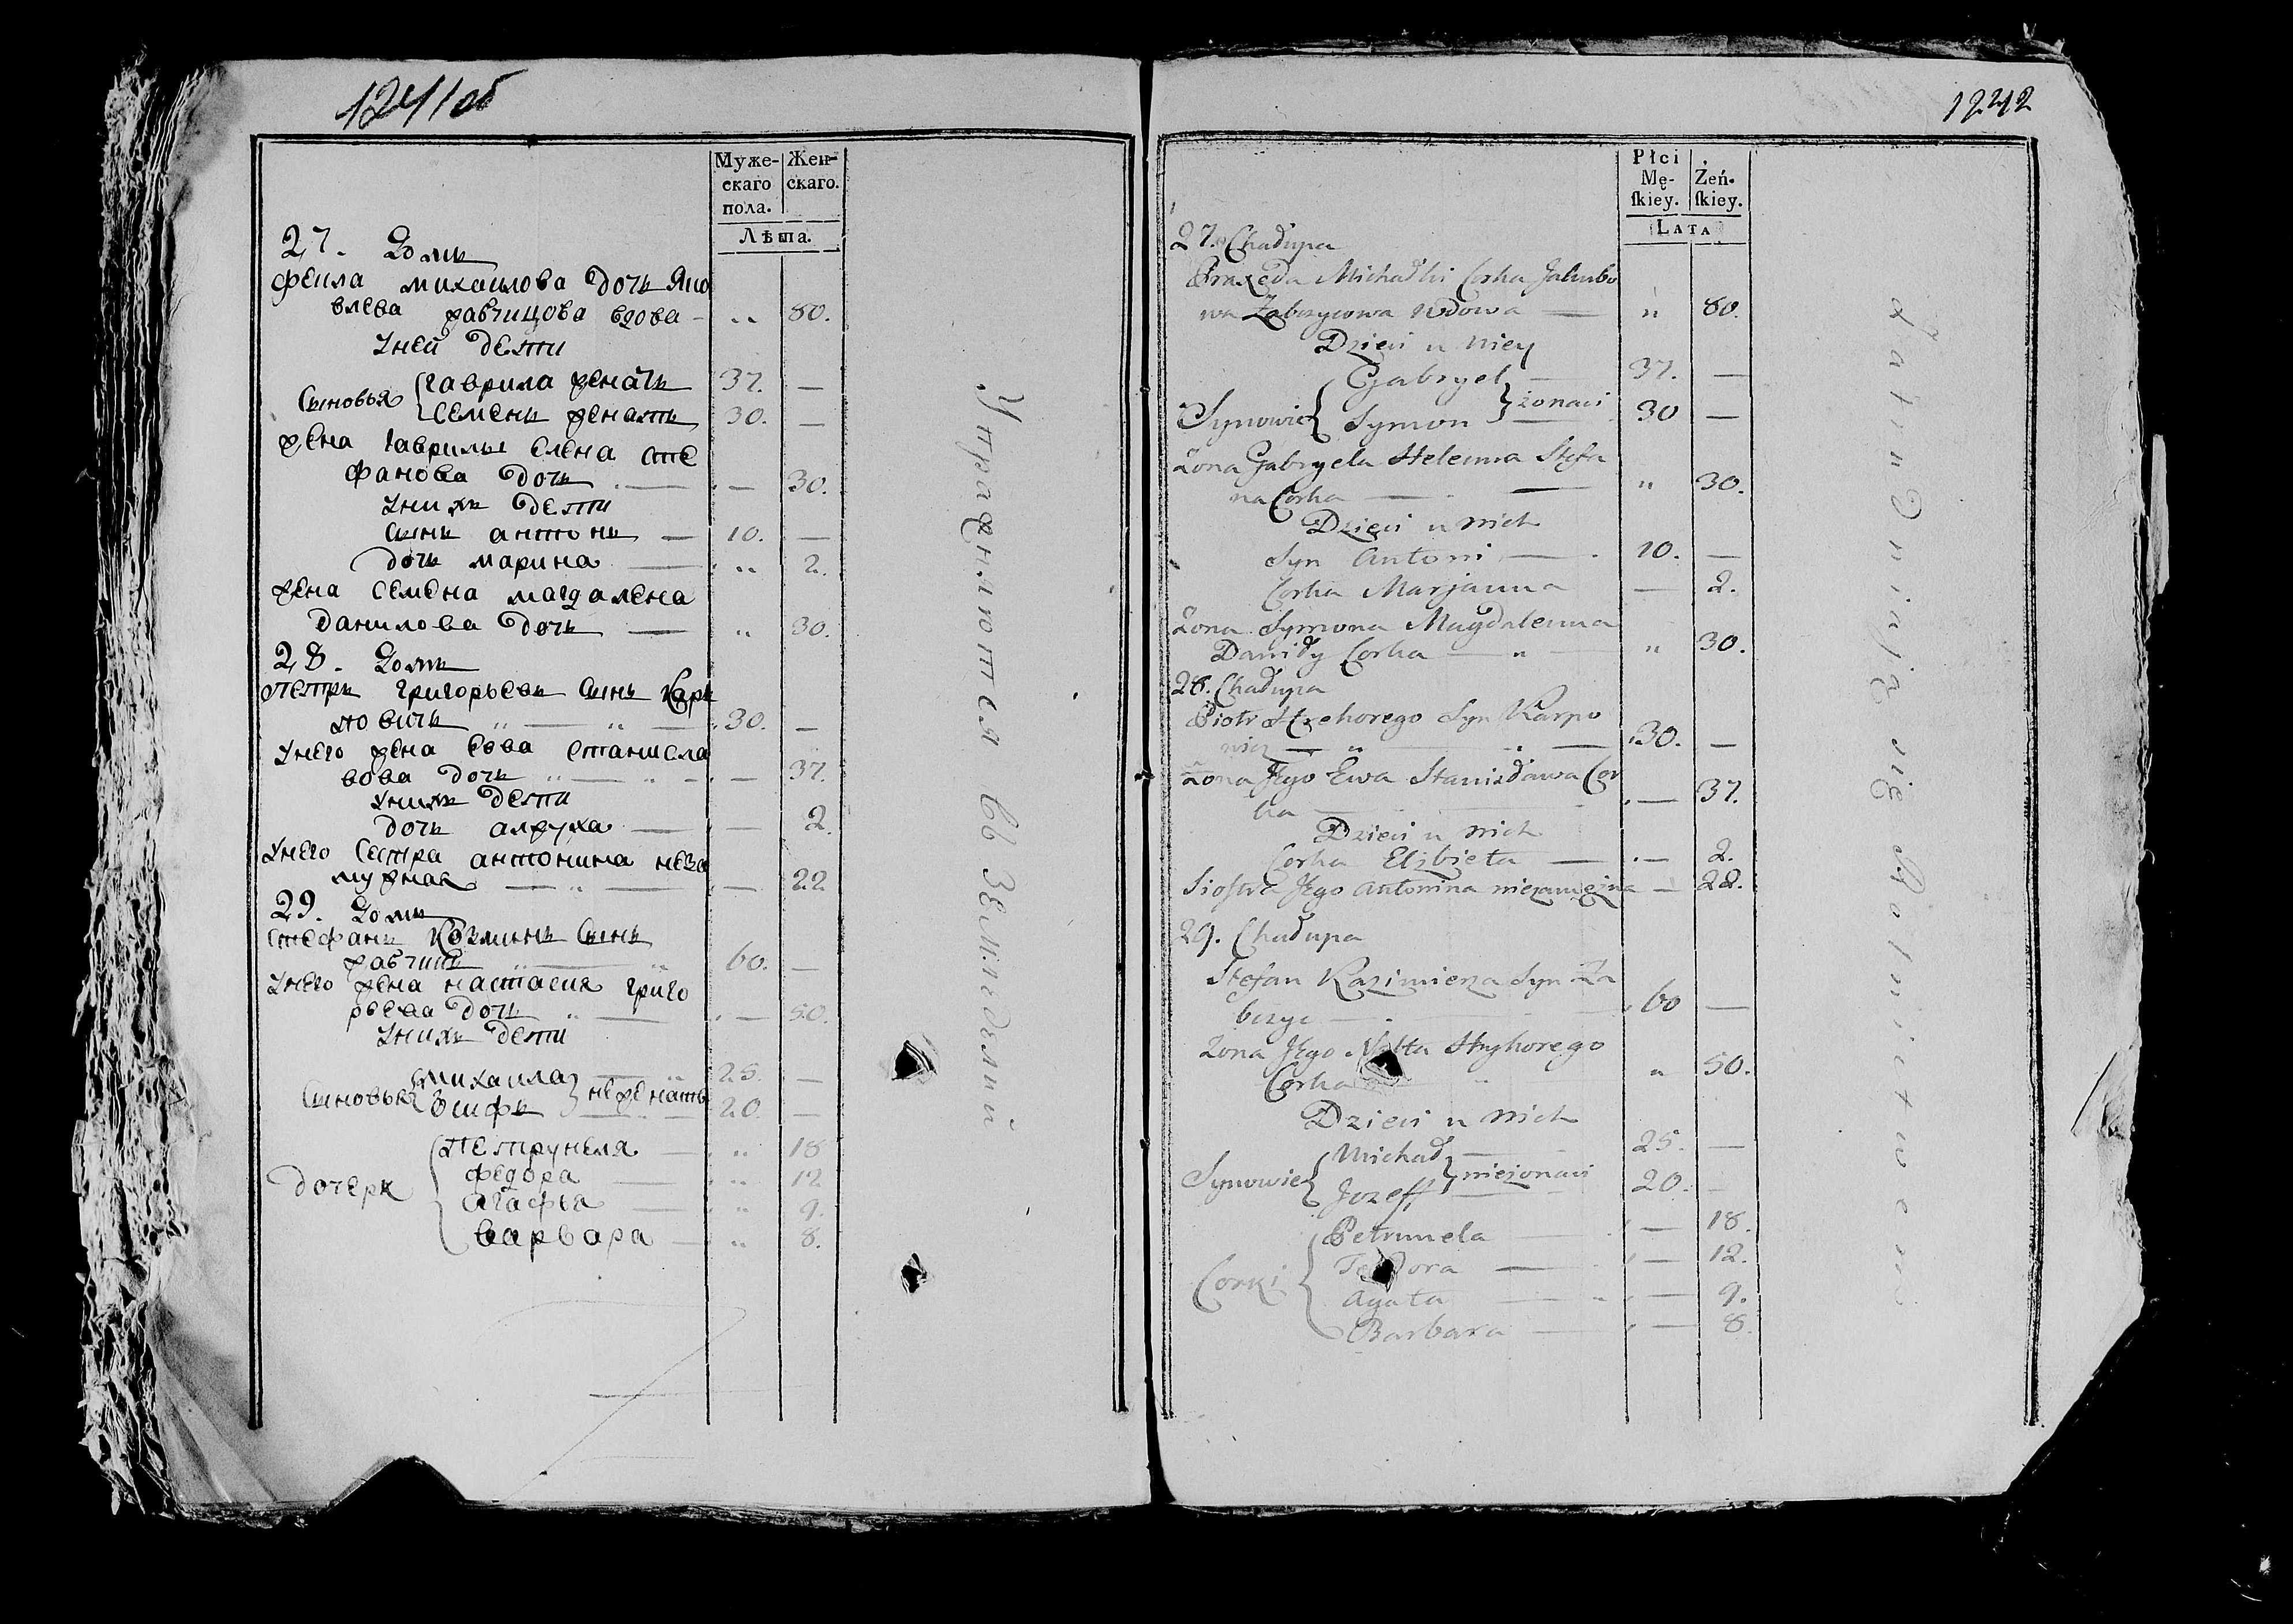 1241об
Муже-
скаго
пола.
Жен-
скаго.
Лѣта.
27. Домъ
феила михаилова дочь Яко
влева жабчицова вдова - " 80.
унеи дети
Сыновья гаврила женатъ 37. —
семенъ женатъ 30. —
жена гаврилы елена сте
фанова дочь — — 30.
унихъ дети
сынъ антонъ — 10. —
дочь марина — " 2.
жена семена магдалена
данилова дочь — " 30.
28. Домъ
петръ григорьевъ сынъ карп
повичь " — " — 30. —
унего жена евва станисла
вова дочь " — " — — 37.
унихъ дети
дочь алжуха — — 2.
унего сестра антонина неза
мужная — " — — 22
29. Домъ
стефанъ козминъ сынъ
жабчицъ " — " 60. —
унего жена настасия григо
рьева дочь " — — 50.
унихъ дети
Сыновья михаила — " 25. —
зифъ неженаты — 20. —
дочеръ петрунеля — " 18
федора — " 12
агафья — " 9.
варвара — " 8.
Упражняются въ земледелии
1242
Płci
Mę-
skiey.
Żeń-
skiey.
LATA
27. Chałupa
Praxeda Michałki Corka Jakubo
wa Zabczycowa Wdowa — " 80.
Dzieci u niey
Synowie Gabryel — 37. —
Symon żonaci — 30 —
Żona Gabryela Helenna Stefa
na Corka — — " 30.
Dzieci u nich
Syn Antoni — 10. —
Corka Marjanna — 2.
Żona Symona Magdalenna
Daniły Corka — " — " 30.
28. Chałupa
Piotr Hrehorego Syn Karpo
wicz — " — " — 30. —
Żona Jego Ewa Stanisława Cor
ka — — 37.
Dzieci u nich
Corka Elżbieta — — 2.
Siostra Jego Antonina niezamężna — 22.
29. Chałupa
Stefan Kazimierza Syn Za
bczyc — 60 —
Żona Jego Hryhorego
Corka " " 50.
Dzieci u nich
Synowie Michał — 25. —
Jozeff nieżonaci — 20. —
Corki Petrunela — — 18.
Teodora — — 12.
Agata — " — 9.
Barbara — — 8.
Zatrudniaią się Rolnictwem